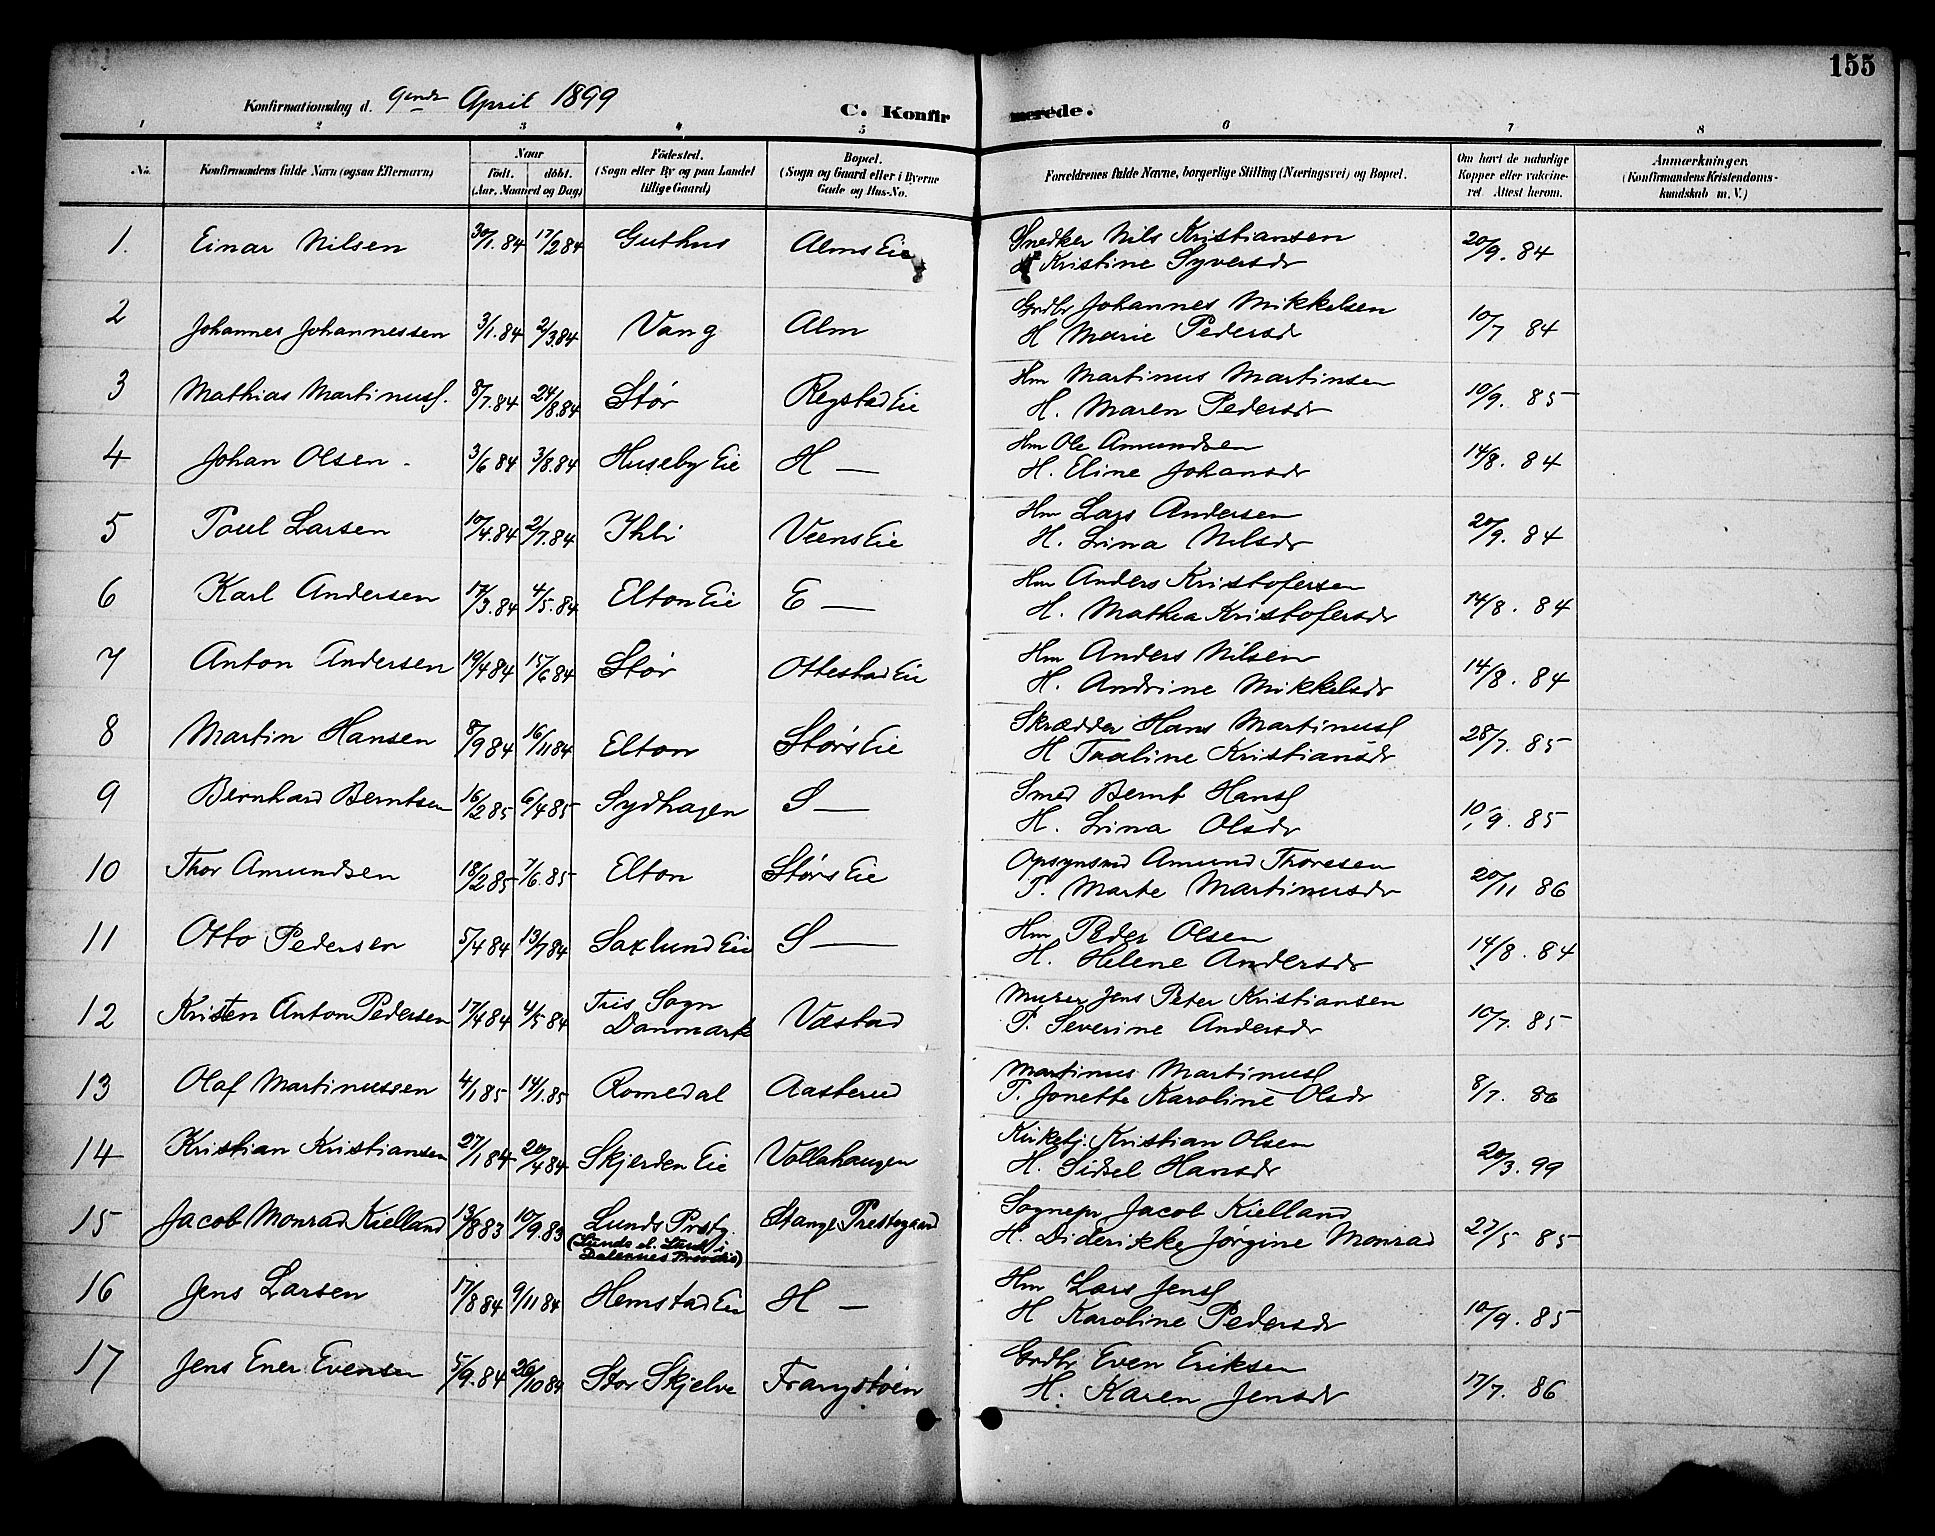 155
Konfirmationsdag d. 9ende April 1899
C. Konfirmerede.
1 2 3 4 5 6 7 8
No. Konfirmandens fulde Navn (ogsaa Efternavn) Naar født. døbt. (Aar, Maaned og Dag) Fødested. (Sogn eller By og paa Landet tillige Gaard) Bopæl. (Sogn og Gaard eller i Byerne Gade og Hus-No. Forældrenes fulde Navne, borgerlige Stilling (Næringsvei) og Bopæl. Om havt de naturlige Kopper eller vakcineret. Attest herom. Anmærkninger. (Konfirmandens Kristendomskundskab m. V.)
1. Einar Nilsen 30/1. 84 17/2 84 Guthus Alms Eie Snedker Nils Kristiansen 20/9. 84
Kristine Syversdr
2 Johannes Johannessen 3/1. 84 2/3 84 Vang Alm Grdbr Johannes Mikkelsen 10/7 84
H Marie Pedersdr
3 Mathias Martinuss. 8/7. 84 24/8 84 Stør Regstad Eie Hm Martinus Martinsen 10/9. 85
H. Maren Pedersdr
4 Johan Olsen 3/6 84 3/8. 84 Huseby Eie H — Hm Ole Amundsen 14/8. 84
H. Eline Johansdr
5 Poul Larsen 10/4. 84 2/7. 84 Ihli Veens Eie Hm Lars Andersen 20/9. 84
H. Lina Nilsdr
6 Karl Andersen 17/3. 84 4/5. 84 Elton Eie E — Hm Anders Kristofersen 14/8. 84
H. Mathea Kristofersdr
7 Anton Andersen 19/4 84 15/6 84 Stør Ottestad Eie Hm Anders Nilsen 14/8. 84
H. Andrine Mikkelsdr
8 Martin Hansen 8/9 84 16/11 84 Elton Størs Eie Skrædder Hans Martinuss 28/7. 85
H Taaline Kristiansdr
9 Bernhard Berntsen 16/2 85 6/4 85 Sydhagen S — Smed Bernt Hanss 10/9. 85
H. Lina Olsdr
10 Thor Amundsen 18/2 85 7/6. 85 Elton Størs Eie Opsynsmd Amund Thoresen 20/11 86
P. Marte Martinusdr
11 Otto Pedersen 5/4 84 13/7 84 Saxlund Eie S — Hm Peder Olsen 14/8. 84
H. Helene Andersdr
12 Kristen Anton Pedersen 17/4 84 4/5 84 Tris Sogn Danmark Væstad Murer Jens Peter Kristiansen 10/7. 85
P. Severine Andersdr
13 Olaf Martinussen 4/1 85 14/1. 85 Romedal Aasterud Martinus Martinuss 8/7. 86
P. Jonette Karoline Olsdr
14 Kristian Kristiansen 27/1 84 20/4 84 Skjerden Eie Vollahaugen Kirketj. Kristian Olsen 20/3. 99
H. Sidsel Hansdr
15 Jacob Monrad Kielland 13/8 83 10/9. 83 Lunds Prstg. Stange Prestegaard Sognepr Jacob Kielland 27/5 85
(Lunds el. Lund i Dalernes Provsti) H. Diderikke Jørgine Monrad
16 Jens Larsen 17/8 84 9/11 84 Hemstad Eie H — Hm Lars Jenss 10/9. 85
H Karoline Pedersdr
17 Jens Ener Evensen 5/9. 84 26/10 84 Stor Skjelve Frangstøen Grdbr Even Eriksen 17/7. 86
H. Karen Jensdr